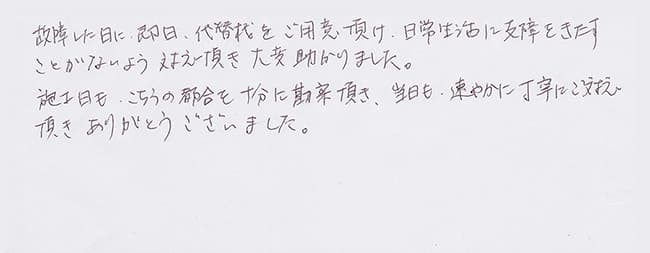 故障した日に、即日、代替機をご用意頂け、日常生活に支障をきたす
ことがないよう対応頂き大変助かりました。
施工日も、こちらの都合を十分に勘案頂き、当日も、速やかに丁寧にご対応
頂きありがとうございました。